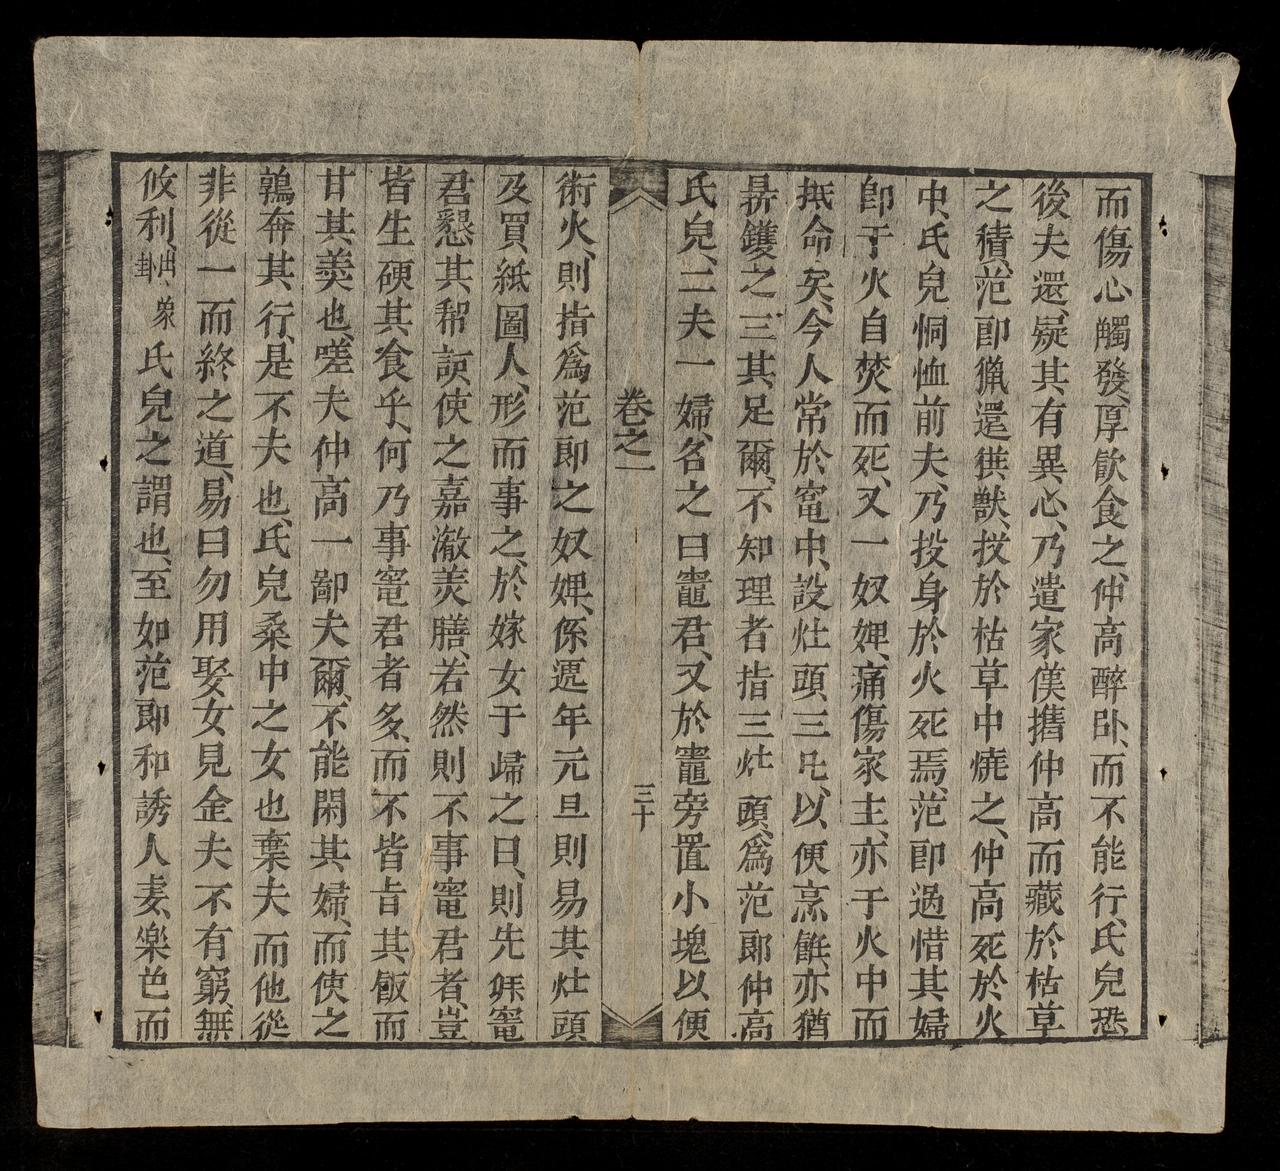 而傷心觸發、厚飲食之、仲高醉卧、而不能行、氏兒恐
後夫還、疑其有異心、乃遣家僕攜仲高而藏於枯草
之積、范郎獵還供獸、扠於枯草中燒之、仲高死於火
中、氏兒恫恤前夫、乃投身於火死焉、范郎過惜其婦
卽于火自焚而死、又一奴婢、痛傷家主、亦于火中而
抵命矣、今人常於窀中、設灶頭、三凥、以便烹飪、亦猶
鼎鑊之、三其足爾、不知理者指三灶頭、爲范郎仲高
氏兒、二夫一婦、名之曰竈君、又於竈旁置小塊以便
卷之一
三十
術火、則指爲范郎之奴婢、係遞年元旦則易其灶頭
及買紙圖人、形而事之、於嫁女于歸之日、則先 竈
君懇其帮 使之嘉澈羙膳、若然則不事竈君者、豈
皆生硬其食乎、何乃事竈君者多、而不皆旨其飯而
甘其羙也、嗟夫仲高一鄙夫爾、不能閑其婦、而使之
鶉奔其行、是不夫也、氏兒桑中之女也棄夫而他從
非從一而終之道、易曰勿用娶女見金夫不有窮、無
攸利、出象卦氏兒之謂也、至如范郎和誘人妻、樂色而